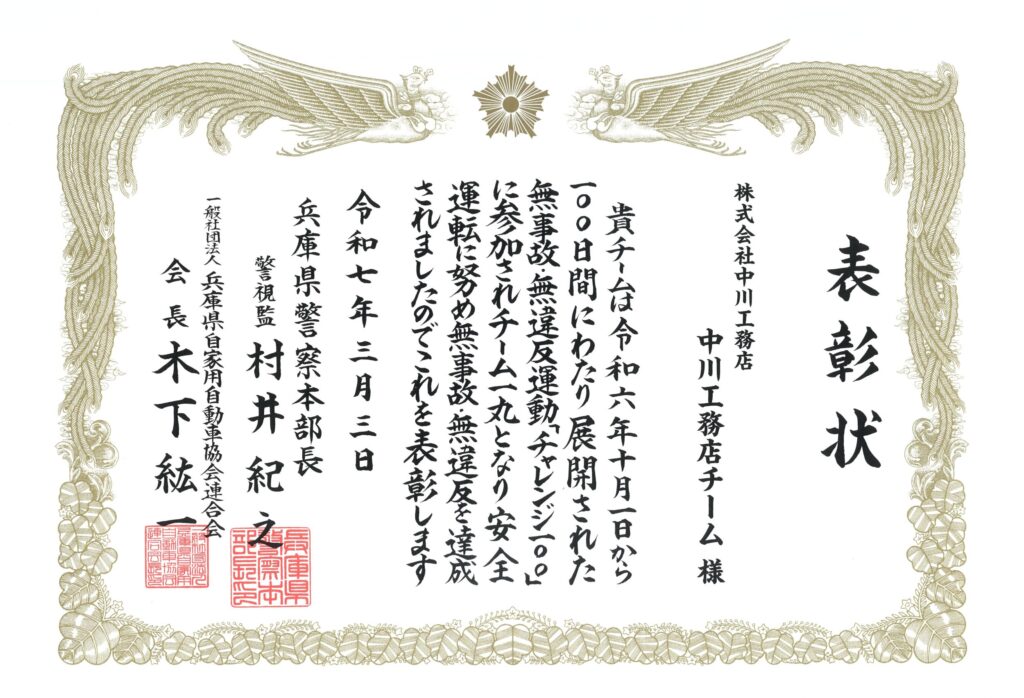 表彰状
株式会社中川工務店
中川工務店チーム 様
貴チームは令和六年十月一日から
一〇〇日間にわたり展開された
無事故・無違反運動「チャレンジ一〇〇」
に参加されチーム一丸となり安全
運転に努め無事故・無違反を達成
されましたのでこれを表彰します
令和七年三月三日
兵庫県警察本部長
警視監 村井紀之
兵庫県警察本部長印
一般社団法人 兵庫県自家用自動車協会連合会
会長 木下紘一